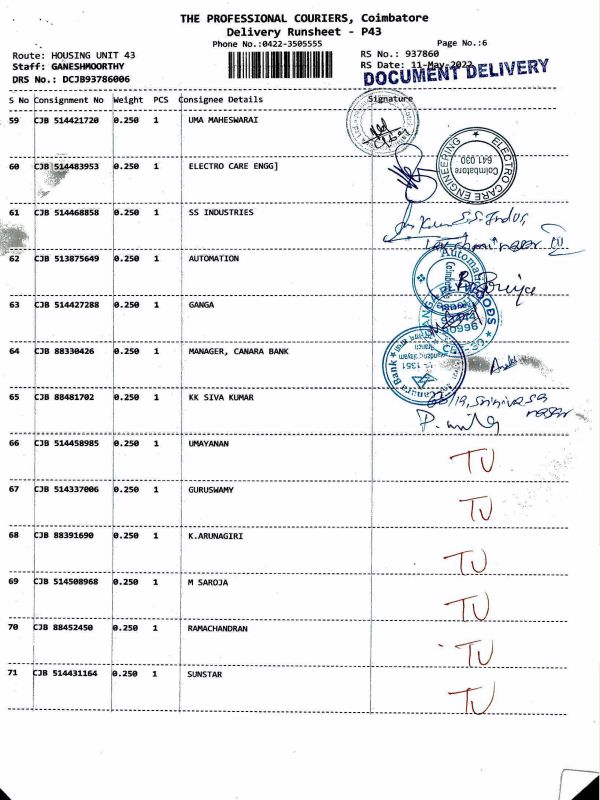 THE PROFESSIONAL COURIERS, Coimbatore
Delivery Runsheet - P43
Phone No.:0422-3505555
Page No.:6
Route: HOUSING UNIT 43
RS No.: 937860
Staff: GANESHMOORTHY
RS Date: 11-May-2022
DRS No.: DCJB93786006
DOCUMENT DELIVERY
S No Consignment No Weight PCS Consignee Details Signature
59 CJB 514421720 0.250 1 UMA MAHESWARAI
60 CJB 514483953 0.250 1 ELECTRO CARE ENGG]
ELECTRO CARE ENGINEERING
Coimbatore
641 030
61 CJB 514468858 0.250 1 SS INDUSTRIES
S.S. Indus,
62 CJB 513875649 0.250 1 AUTOMATION
Automati
Priya
63 CJB 514427288 0.250 1 GANGA
64 CJB 88330426 0.250 1 MANAGER, CANARA BANK
Canara Bank
65 CJB 88481702 0.250 1 KK SIVA KUMAR
66 CJB 514458985 0.250 1 UMAYANAN TU
67 CJB 514337006 0.250 1 GURUSWAMY TU
68 CJB 88391690 0.250 1 K.ARUNAGIRI TU
69 CJB 514508968 0.250 1 M SAROJA TU
70 CJB 88452450 0.250 1 RAMACHANDRAN TU
71 CJB 514431164 0.250 1 SUNSTAR TU